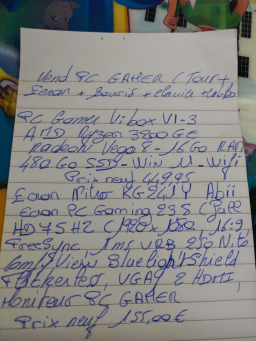 Vend PC GAMER (Tour +
Ecran + souris + clavier +
PC Gamer Vibox VI-3
AMD Ryzen 3200GE
Radeon Vega 8 - 16 Go RAM
480 Go SSD - Win 11 - Wifi
Prix neuf 449,95
Ecran Nitro KG241Y Abii
Ecran PC Gaming 23,8 (Full
HD 75 HZ (1920 x 1080, 16:9,
FreeSync, 1ms VRB 250 Nits
ComfyView BlueLightShield
Flickerless, VGA, 2 HDMI,
Moniteur PC GAMER
Prix neuf 155,00 €